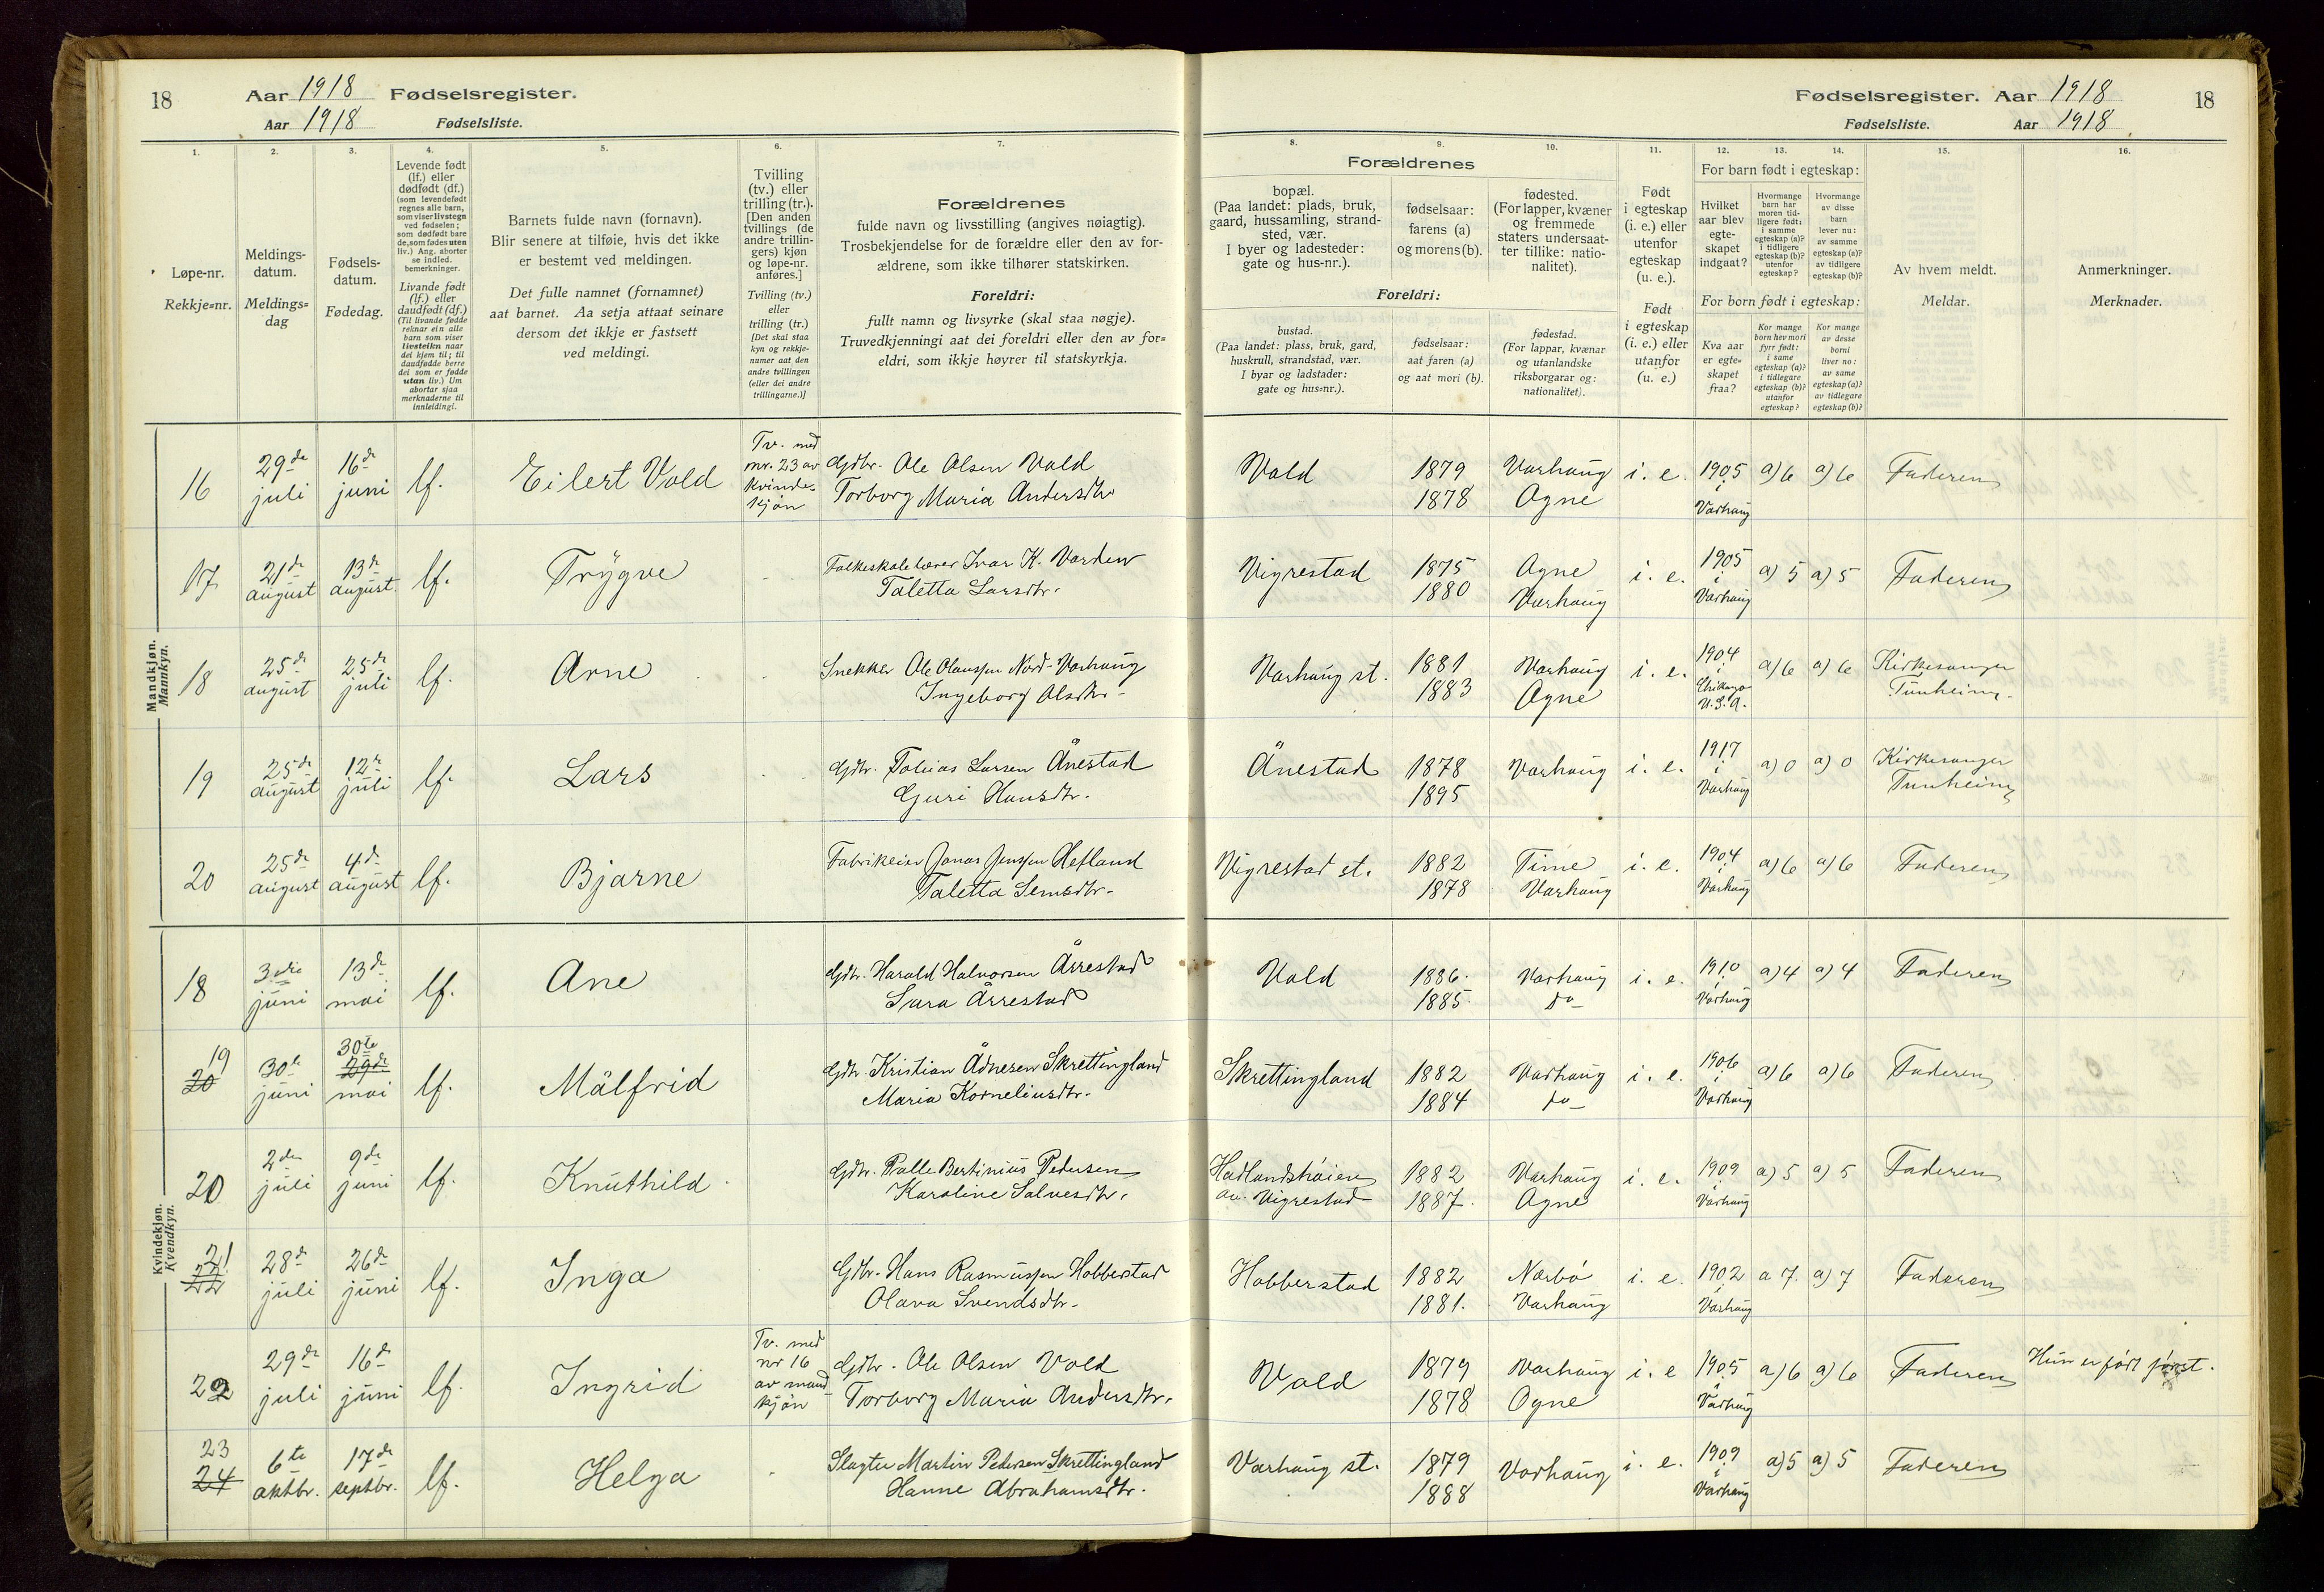 18 Aar 1918 Fødselsregister.
Aar 1918 Fødselsliste.
Fødselsregister. Aar 1918 18
Fødselsliste. Aar 1918
1.
Løpe-nr.
Rekkje=nr.
2.
Meldings-
datum.
Meldings=
dag
3.
Fødsels-
datum.
Fødedag.
4.
Levende født
(lf.) eller
dødfødt (df.)
(som levendefødt
regnes alle barn,
som viser livstegn
ved fødselen;
som dødfødt bare
de, som fødes uten
liv.) Ang. aborter
se indled.
bemerkninger.
Livande født
(lf.) eller
daudfødt (df.)
(Til livande fødde
reknar ein alle
barn som viser
livsteikn naar
dei kjem til; til
daudfødde berre
dei som er fødde
utan liv.) Um
abortar sjaa
merknaderne til
innleidingi.
5.
Barnets fulde navn (fornavn).
Blir senere at tilføie, hvis det ikke
er bestemt ved meldingen.
Det fulle namnet (fornamnet)
aat barnet. Aa setja attaat seinare
dersom det ikkje er fastsett
ved meldingi.
6.
Tvilling
(tv.) eller
trilling (tr.).
[Den anden
tvillings (de
andre trillin-
gers) kjøn
og løpe-nr.
anføres.]
Tvilling (tv.)
eller
trilling (tr.)
[Det skal staa
kyn og rekkje-
numer aat den
andre tvillingen
(eller dei andre
trillingarne.)]
7.
Forældrenes
fulde navn og livsstilling (angives nøiagtig).
Trosbekjendelse for de forældre eller den av for-
ældrene, som ikke tilhører statskirken.
Foreldri:
fullt namn og livsyrke (skal staa nøgje).
Truvedkjenningi aat dei foreldri eller den av for=
eldri, som ikkje høyrer til statskyrkja.
Forældrenes
8.
bopæl.
(Paa landet: plads, bruk,
gaard, hussamling, strand-
sted, vær.
I byer og ladesteder:
gate og hus-nr.).
9.
fødselsaar:
farens (a)
og morens (b).
10.
fødested.
(For lapper, kvæner
og fremmede
staters undersaat-
ter tillike: natio-
nalitet).
Foreldri:
bustad.
(Paa landet: plass, bruk, gard,
huskrull, strandstad, vær.
I byar og ladstader:
gate og hus=nr.).
fødselsaar:
aat faren (a)
og aat mori (b).
fødestad.
(For lappar, kvænar
og utanlandske
riksborgarar og:
nationalitet).
11.
Født
i egteskap
(i. e.) eller
utenfor
egteskap
(u. e.).
Født
i egteskap
(i. e.) eller
utanfor
(u. e.)
For barn født i egteskap:
12.
Hvilket
aar blev
egte-
skapet
indgaat?
13.
Hvormange
barn har
moren tid-
ligere født:
i samme
egteskap (a)?
i tidligere
egteskap (b)?
utenfor
egteskap?
14.
Hvormange
av disse
barn
lever nu:
av samme
egteskap (a)?
av tidligere
egteskap (b)?
For born født i egteskap:
Kva aar
er egte=
skapet
fraa?
Kor mange
born hev mori
fyrr født:
i same
egteskap (a)?
i tidlegare
egteskap (b)?
utanfor
egteskap?
Kor mange
av desse
borni
liver no:
av same
egteskap (a)?
av tidlegare
egteskap (b)?
15.
Av hvem meldt.
Meldar.
16.
Anmerkninger.
Merknader.
Mandkjøn.
Mannkyn.
16 29de juli 16de juni lf. Eilert Vold Tv. med nr. 23 av kvinde-kjøn Gdbr. Ole Olsen Vold Torborg Maria Andersdtr. Vold 1879 1878 Varhaug Ogne i. e. 1905 i Varhaug a) 6 a) 6 Faderen
17 21de august 13de august lf. Trygve Folkeskolelærer Ivar K. Varden Taletta Larsdtr. Vigrestad 1875 1880 Ogne Varhaug i. e. 1905 i Varhaug a) 5 a) 5 Faderen
18 25de august 25de juli lf. Arne Snekker Ole Olaussen Nord-Varhaug Ingeborg Olsdtr. Varhaug st. 1881 1883 Varhaug Ogne i. e. 1904 i Chikago U.S.A. a) 6 a) 6 Kirkesanger Tunheim
19 25de august 12te juli lf. Lars Gdbr. Tobias Larsen Ånestad Guri Hansdtr. Ånestad 1878 1895 Varhaug i. e. 1917 i Varhaug a) 0 a) 0 Kirkesanger Tunheim
20 25de august 4de august lf. Bjarne Fabrikeier Jonas Jenssen Hetland Taletta Semsdtr. Vigrestad st. 1882 1878 Time Varhaug i. e. 1904 i Varhaug a) 6 a) 6 Faderen
Kvindekjøn.
Kvendkyn.
18 3die juni 13de mai lf. Ane Gdbr. Harald Halvorsen Årrestad Sara Årrestad Vold 1886 1885 Varhaug do i. e. 1910 i Varhaug a) 4 a) 4 Faderen
19 20 30te juni 30te 29de mai lf. Målfrid Gdbr. Kristian Ådnesen Skrettingland Maria Korneliusdtr. Skrettingland 1882 1884 Varhaug do i. e. 1906 i Varhaug a) 6 a) 6 Faderen
20 2den juli 9de juni lf. Knuthild Gdbr. Palle Bertinius Pedersen Karoline Salvesdtr. Hadlandshøien av Vigrestad 1882 1887 Varhaug Ogne i. e. 1909 i Varhaug a) 5 a) 5 Faderen
21 22 28de juli 26de juni lf. Inga Gdbr. Hans Rasmussen Hobberstad Olava Svendsdtr. Hobberstad 1882 1881. Nærbø Varhaug i. e. 1902 i Varhaug a 7. a) 7 Faderen
22 29de juli 16de juni lf. Ingrid Tv. med nr 16 av mandkjøn Gdbr. Ole Olsen Vold Torborg Maria Andersdtr. Vold 1879 1878 Varhaug Ogne i. e 1905 i Varhaug a) 6 a) 6 Faderen Hun er født først.
23 24 6te oktbr. 17de septbr. lf. Helga Slagter Martin Pedersen Skrettingland Hanne Abrahamsdtr. Varhaug st. 1879 1888 Varhaug i. e. 1909 i Varhaug a) 5 a) 5 Faderen